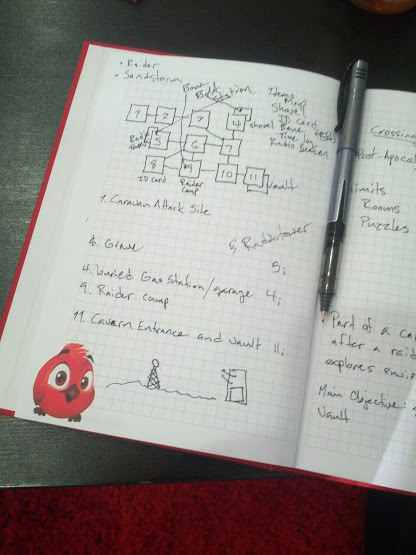 • Raider
• Sandstorm
Station
Items
Map
Shovel
ID card
Bone
Radio beacon
1
2
7
4
shovel
5
6
7
8
9
10
11
ID card
Raider
camp
Vault
1. Caravan Attack Site
8. Grave
8. Radiotower
5;
4. buried Gas Station/garage 4;
9. Raider camp
11. Cavern Entrance and vault 11;
Crossing
Post-Apoca
imits
Rooms
Puzzles
Part of a ca
after a raid
explores envir
Main Objective:
Vault